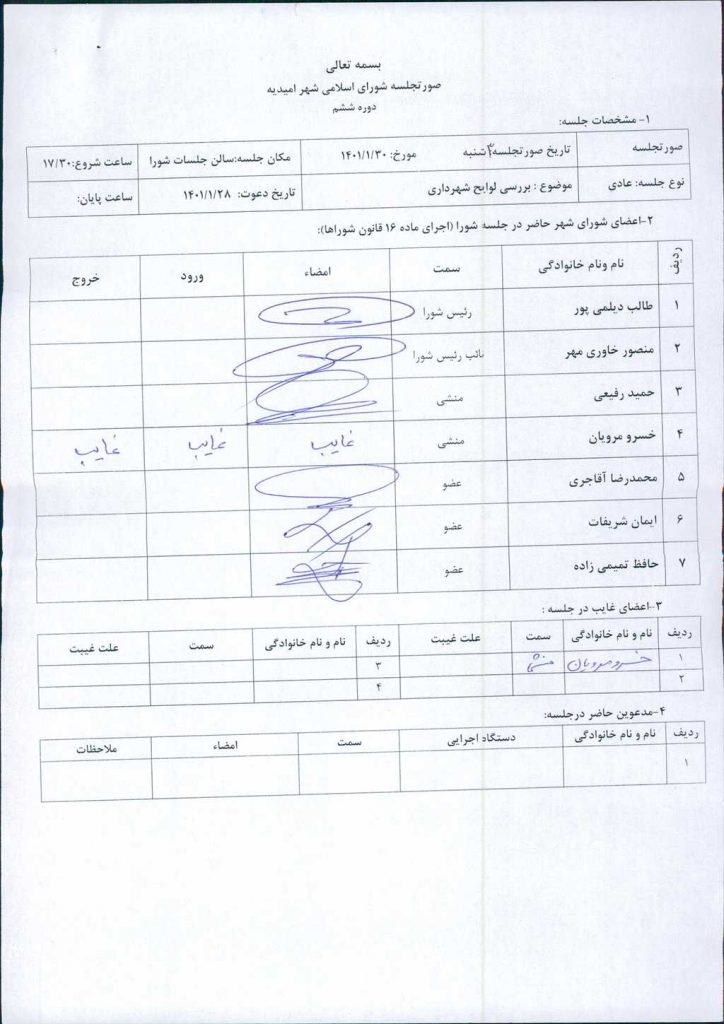 بسمه تعالی
صورتجلسه شورای اسلامی شهر امیدیه
دوره ششم
۱- مشخصات جلسه:
صورتجلسه تاریخ صورتجلسه ۳شنبه مورخ: ۱۴۰۱/۱/۳۰ مکان جلسه:سالن جلسات شورا ساعت شروع:۱۷/۳۰
نوع جلسه: عادی موضوع : بررسی لوایح شهرداری تاریخ دعوت: ۱۴۰۱/۱/۲۸ ساعت پایان:
۲-اعضای شورای شهر حاضر در جلسه شورا (اجرای ماده ۱۶ قانون شوراها):
ردیف نام ونام خانوادگی سمت امضاء ورود خروج
۱ طالب دیلمی پور رئیس شورا
۲ منصور خاوری مهر نائب رئیس شورا
۳ حمید رفیعی منشی
۴ خسرو مرویان منشی غایب غایب غایب
۵ محمدرضا آقاجری عضو
۶ ایمان شریفات عضو
۷ حافظ تمیمی زاده عضو
۳-اعضای غایب در جلسه :
ردیف نام و نام خانوادگی سمت علت غیبت ردیف نام و نام خانوادگی سمت علت غیبت
۱ خسرو مرویان منشی ۳
۲ ۴
۴-مدعوین حاضر درجلسه:
ردیف نام و نام خانوادگی دستگاه اجرایی سمت امضاء ملاحظات
۱